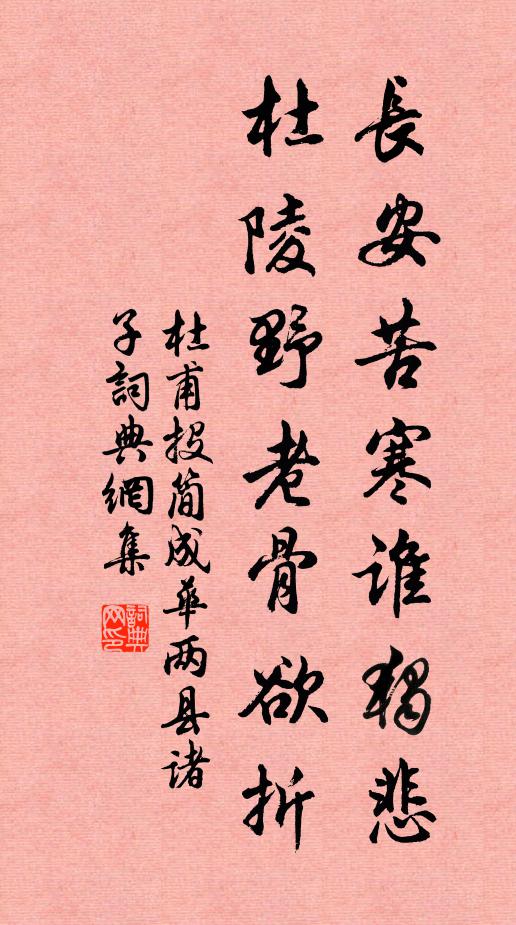 長安苦寒誰獨悲
杜陵野老骨欲折
杜甫投简成華两县諸
子詞典網集
詞典
网印